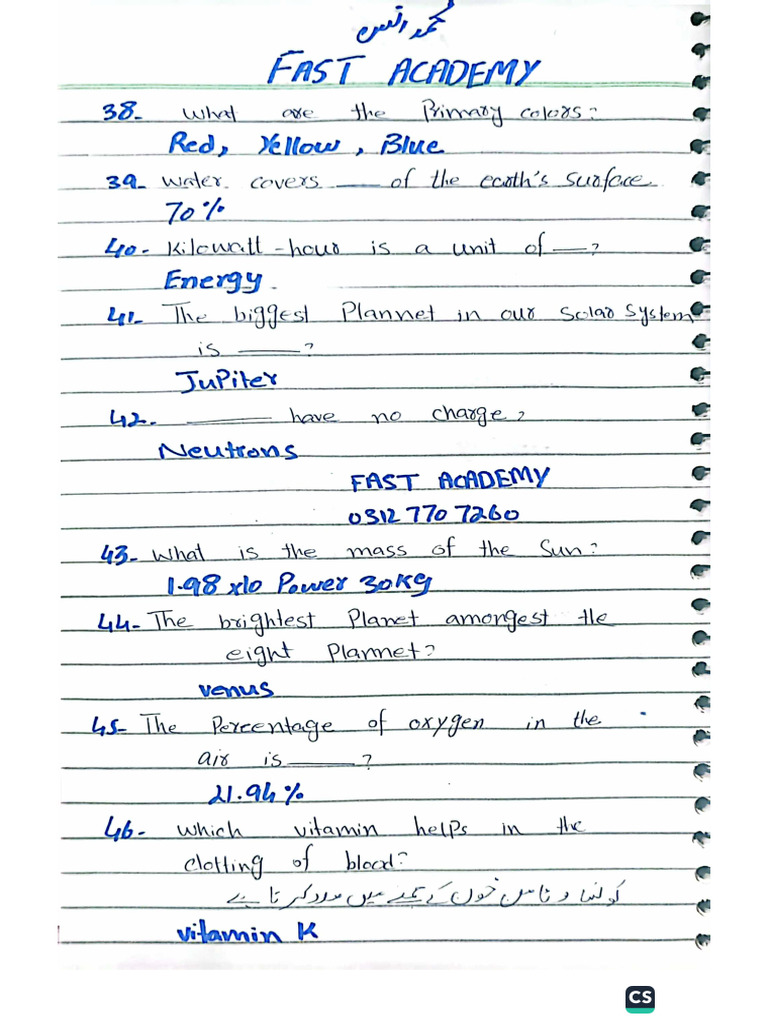 محمد انس
FAST ACADEMY
38- What are the Primary colors?
Red, Yellow, Blue
39- Water covers ___ of the earth's surface
70%
40- Kilowatt-hour is a unit of ___?
Energy.
41- The biggest Plannet in our solar system
is ___?
JuPiter
42- ___ have no charge?
Neutrons
FAST ACADEMY
0312 770 7260
43- What is the mass of the Sun?
1.98 x10 Power 30KG
44- The brightest Planet amongest tle
eight Plannet?
venus
45- The Percentage of oxygen in the
air is ___?
21.94%
46- which vitamin helps in the
clotting of blood?
کونسا وٹامن خون کے جمنے میں مدد کرتا ہے
vitamin K
CS